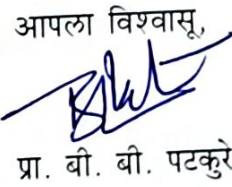 आपला विश्वासू,
प्रा. बी. बी. पटकुरे